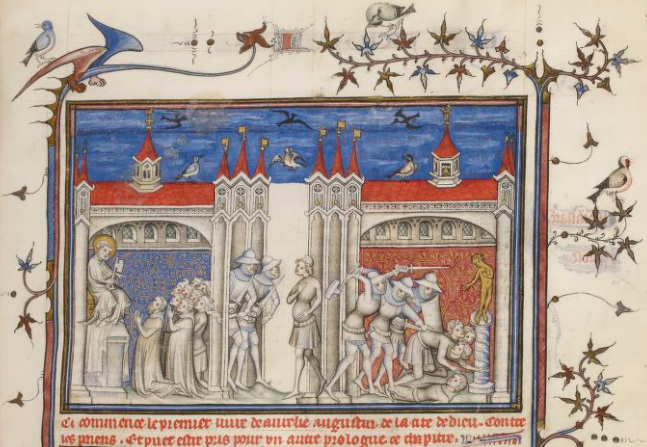 Ci commence le premier livre de aurelie augustin de la cite de dieu. Contre
les paiens. Et puet estre pris pour un autre prologue ce chapitre.